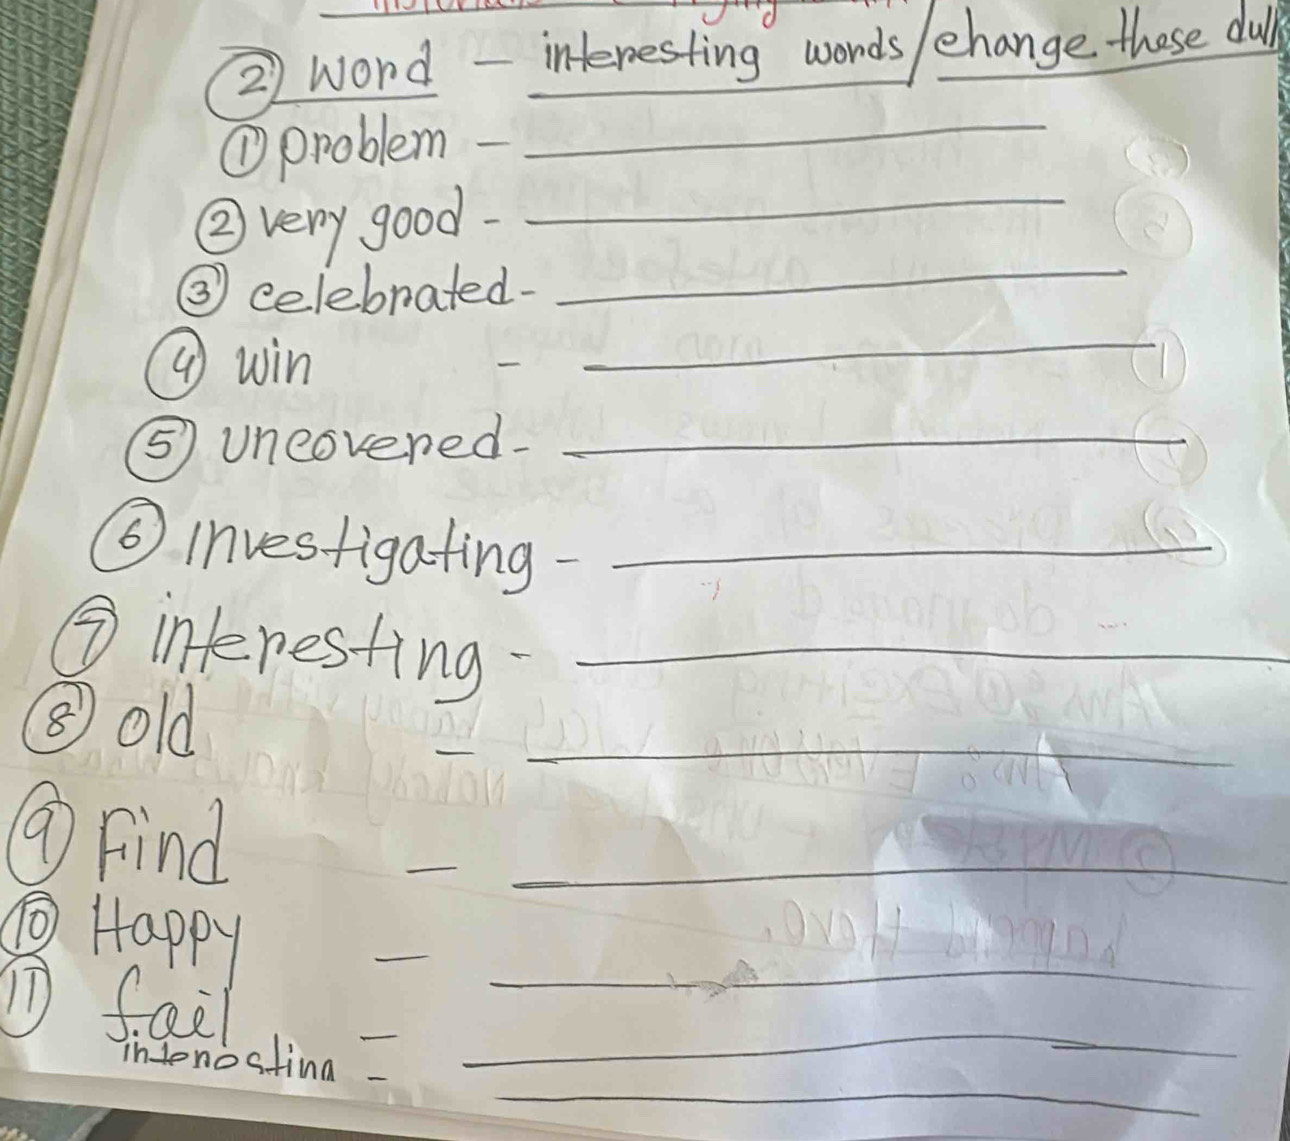 ② word - interesting words/change these dull
① problem -
② very good -
③ celebrated -
④ win -
⑤ uncovered -
⑥ investigating -
⑦ interesting -
⑧ old -
⑨ Find -
⑩ Happy -
⑪ fail -
interesting -